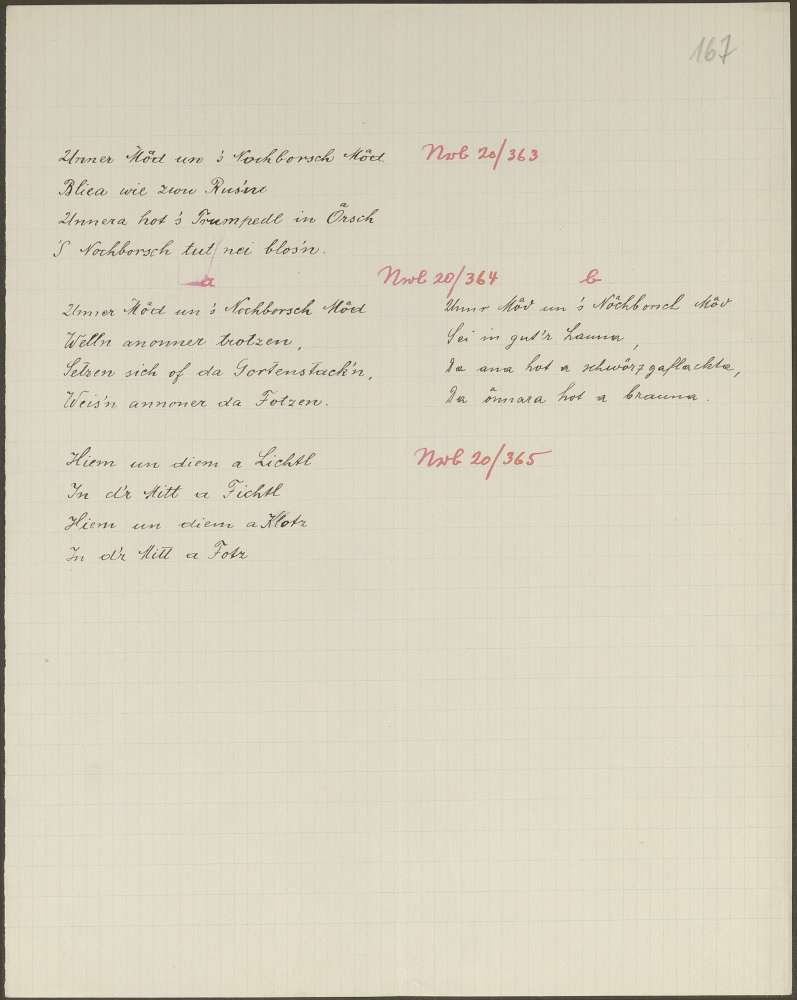 167
Unner Möd un 's Nochborsch Möd Nwb 20/363
Bliea wie zwu Rus'ne
Unnera hot 's Trumpedl in Ǒrsch
'S Nochborsch tut nei blos'n.
a Nwb 20/364 b
Unner Möd un 's Nochborsch Möd
Welln anonner trotzen,
Setzen sich of da Gortenstack'n,
Weis'n annoner da Fotzen.
Unnr Möd un 's Nöchborsch Möd
Sei in gut'r Launa,
Da ana hot a schwörzgaflackta,
Da önnara hot a brauna.
Hiem un diem a Lichtl Nwb 20/365
In d'r Mitt a Fichtl
Hiem un diem a Klotz
In d'r Mitt a Fotz